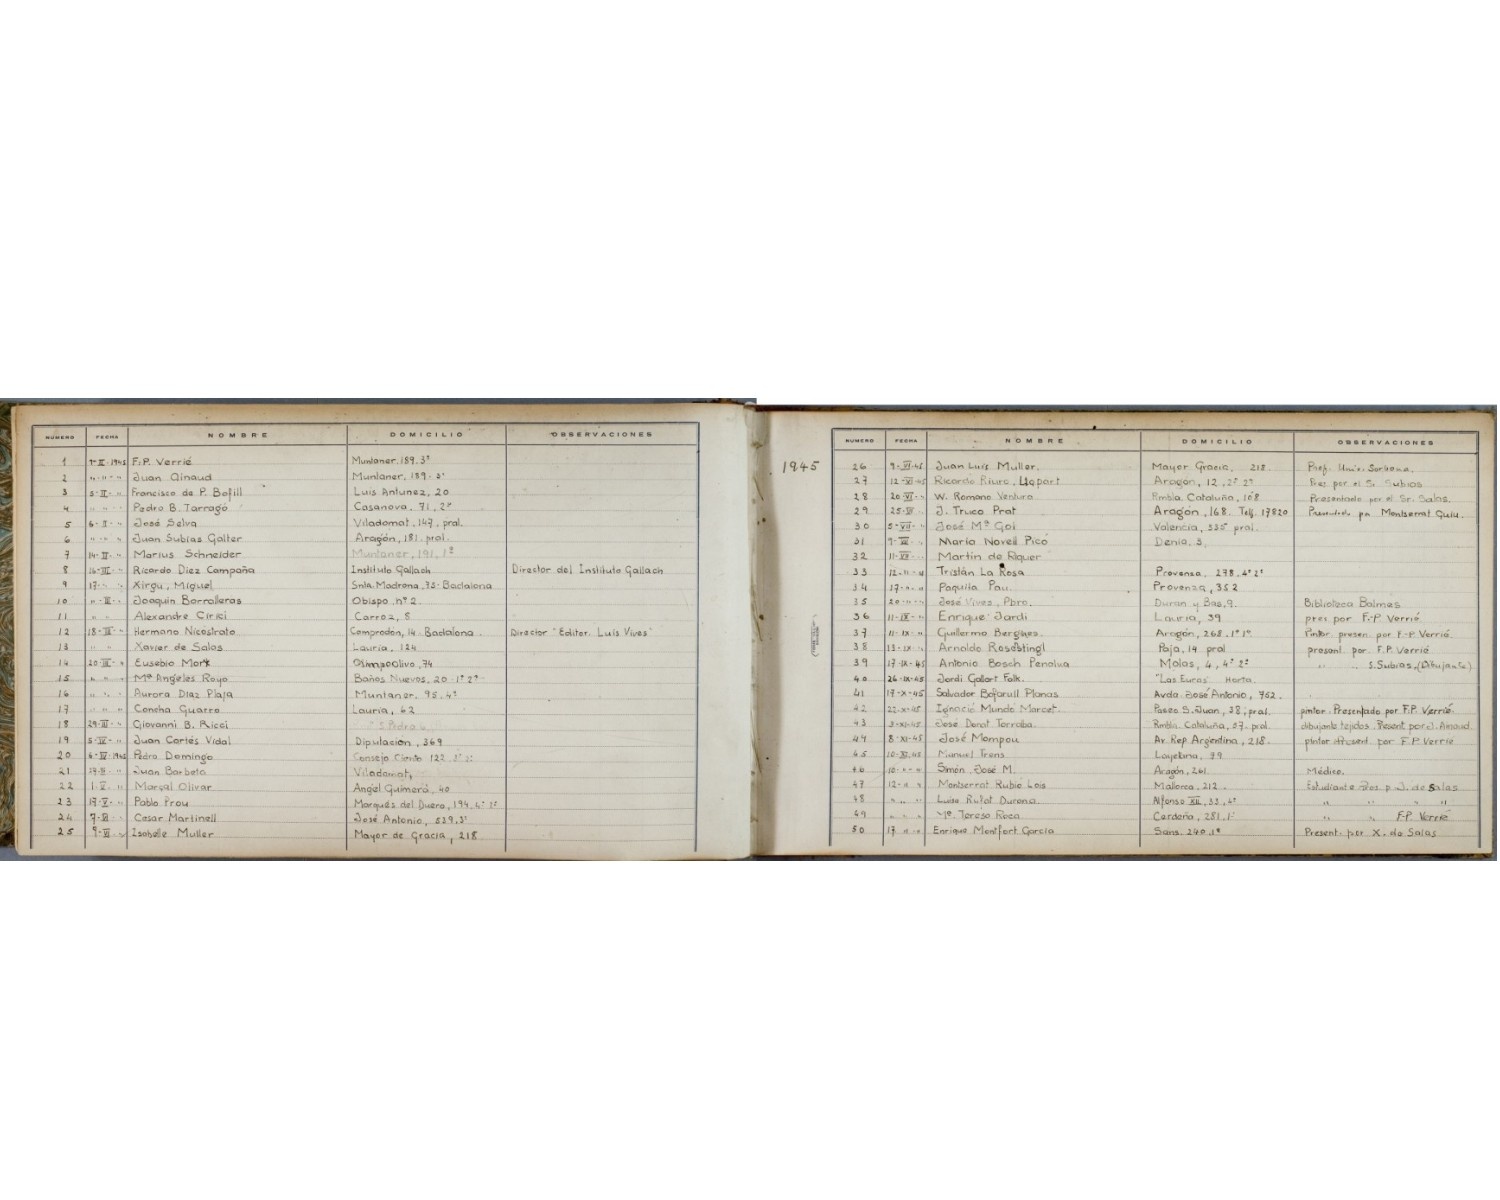 NUMERO FECHA NOMBRE DOMICILIO OBSERVACIONES
1 1-II-1945 F.-P. Verrié Muntaner.189.3º
2 " " " Juan Ainaud Muntaner, 189. 3º
3 5-II-" Francisco de P. Bofill Luis Antunez, 20
4 " " " Pedro B. Tarragó Casanova, 71, 2º
5 6-II-" José Selva Viladomat, 147, pral.
6 " " " Juan Subias Galter Aragón, 181. pral.
7 14-II-" Marius Schneider Muntaner, 191, 1º
8 16-III-" Ricardo Diez Campaña Instituto Gallach Director del Instituto Gallach
9 17-" " Xirgu, Miguel Snta. Madrona, 73-Badalona
10 "-III-" Joaquin Borralleras Obispo nº 2.
11 " " Alexandre Cirici Carroz, 8
12 18-III-" Hermano Nicostrato Camprodon, 14. Badalona. Director "Editor. Luis Vives"
13 " " " Xavier de Salas Lauria, 124
14 20-III-" Eusebio Mork Olimpo Olivo, 74
15 " " " Mª Angeles Royo Baños Nuevos, 20-1º 2ª
16 " " " Aurora Diaz Plaja Muntaner, 95. 4º
17 " " " Concha Guarro Lauria, 62
18 29-III-" Giovanni B. Ricci S. Pedro
19 5-IV-" Juan Cortés Vidal Diputación, 369
20 6-IV-1945 Pedro Domingo Consejo Ciento 122
21 Juan Barbeta Viladomat,
22 1-V-" Marçal Olivar Angel Guimerá, 40
23 17-V-" Pablo Prou Marqués del Duero, 194, 4º 1ª
24 7-VI-" Cesar Martinell José Antonio, 539.3º
25 9-VI-" Isabele Muller Mayor de Gracia, 218
1945
NUMERO FECHA NOMBRE DOMICILIO OBSERVACIONES
26 9-VI-45 Juan Luis Muller. Mayor Gracia, 218. Prof. Univ. Sorbona.
27 12-VI-45 Ricardo Riura, Llopart Aragón, 12, 2º 2ª Pres. por el Sr Subias
28 20-VI-" W. Romano Ventura Rmbla. Cataluña, 108 Presentado por el Sr. Salas.
29 25-VI-" J. Truco Prat Aragón, 168. Telf. 17820 Presentado por Montserrat Guiu.
30 5-VII-" José Mª Goi Valencia, 335 pral.
31 7-VII-" Mario Novell Picó Denia, 3.
32 11-VII-" Martin de Riquer
33 12-"-" Tristán La Rosa Provenza, 278.4º 2ª
34 17-"-" Paquita Pau. Provenza, 352
35 20-"-" José Vives, Pbro. Duran y Bas, 9. Biblioteca Balmes
36 11-IX-" Enrique Jardi Lauria, 39 pres por F.-P Verrié
37 11-IX-" Guillermo Berghes. Aragón, 268. 1º 1ª Pintor. presen. por F.-P. Verrié.
38 13-IX-" Arnoldo Rosenstingl Paja, 14 pral present. por. F.P. Verrié
39 17-IX-45 Antonio Bosch Penalva Molas, 4, 4º 2ª " " S.Subias, (Dibujante)
40 26-IX-45 Jordi Gallart Folk. "Las Euras" Horta.
41 17-X-45 Salvador Bofarull Planas Avda. José Antonio, 762.
42 22-X-45 Ignacio Mundó Marcet. Paseo S. Juan, 38, pral. pintor. Presentado por F.P. Verrié.
43 3-XI-45 José Dorat Torroba Rmbla. Cataluña, 57. pral. dibujante tejidos. Present por J. Ainaud.
44 8-XI-45 José Mompou Av. Rep. Argentina, 218. pintor Present. por F.P Verrié
45 10-XI-45 Manuel Trens Layetana, 79
46 10-"-" Simón. José M. Aragón, 261 Médico.
47 12-"-" Montserrat Rubió Lois Mallorca, 212. Estudiante Pres. p. J. de Salas
48 " " " Luisa Rufat Durana. Alfonso XII, 33, 4º " " "
49 " " " Mª. Teresa Roca Cardeña, 281. 1º " " F-P Verrié
50 17 " " Enrique Montfort García Sans. 240.1º Present. por X. de Salas